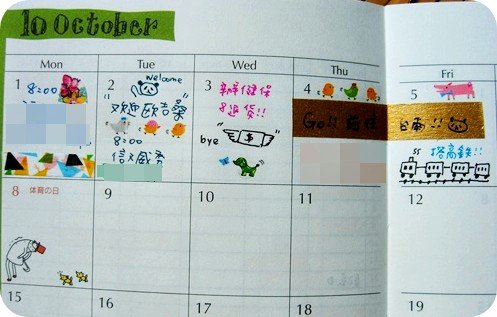 10 October
Mon Tue Wed Thu Fri
1 8:00
2 Welcome
歡迎歐吉桑
8:00
3 辦健保
&退貨!!
bye $
4 Go!!
5 台南!!
搭高鐵!!
8 体育の日
9 10 11 12
15 16 17 18 19